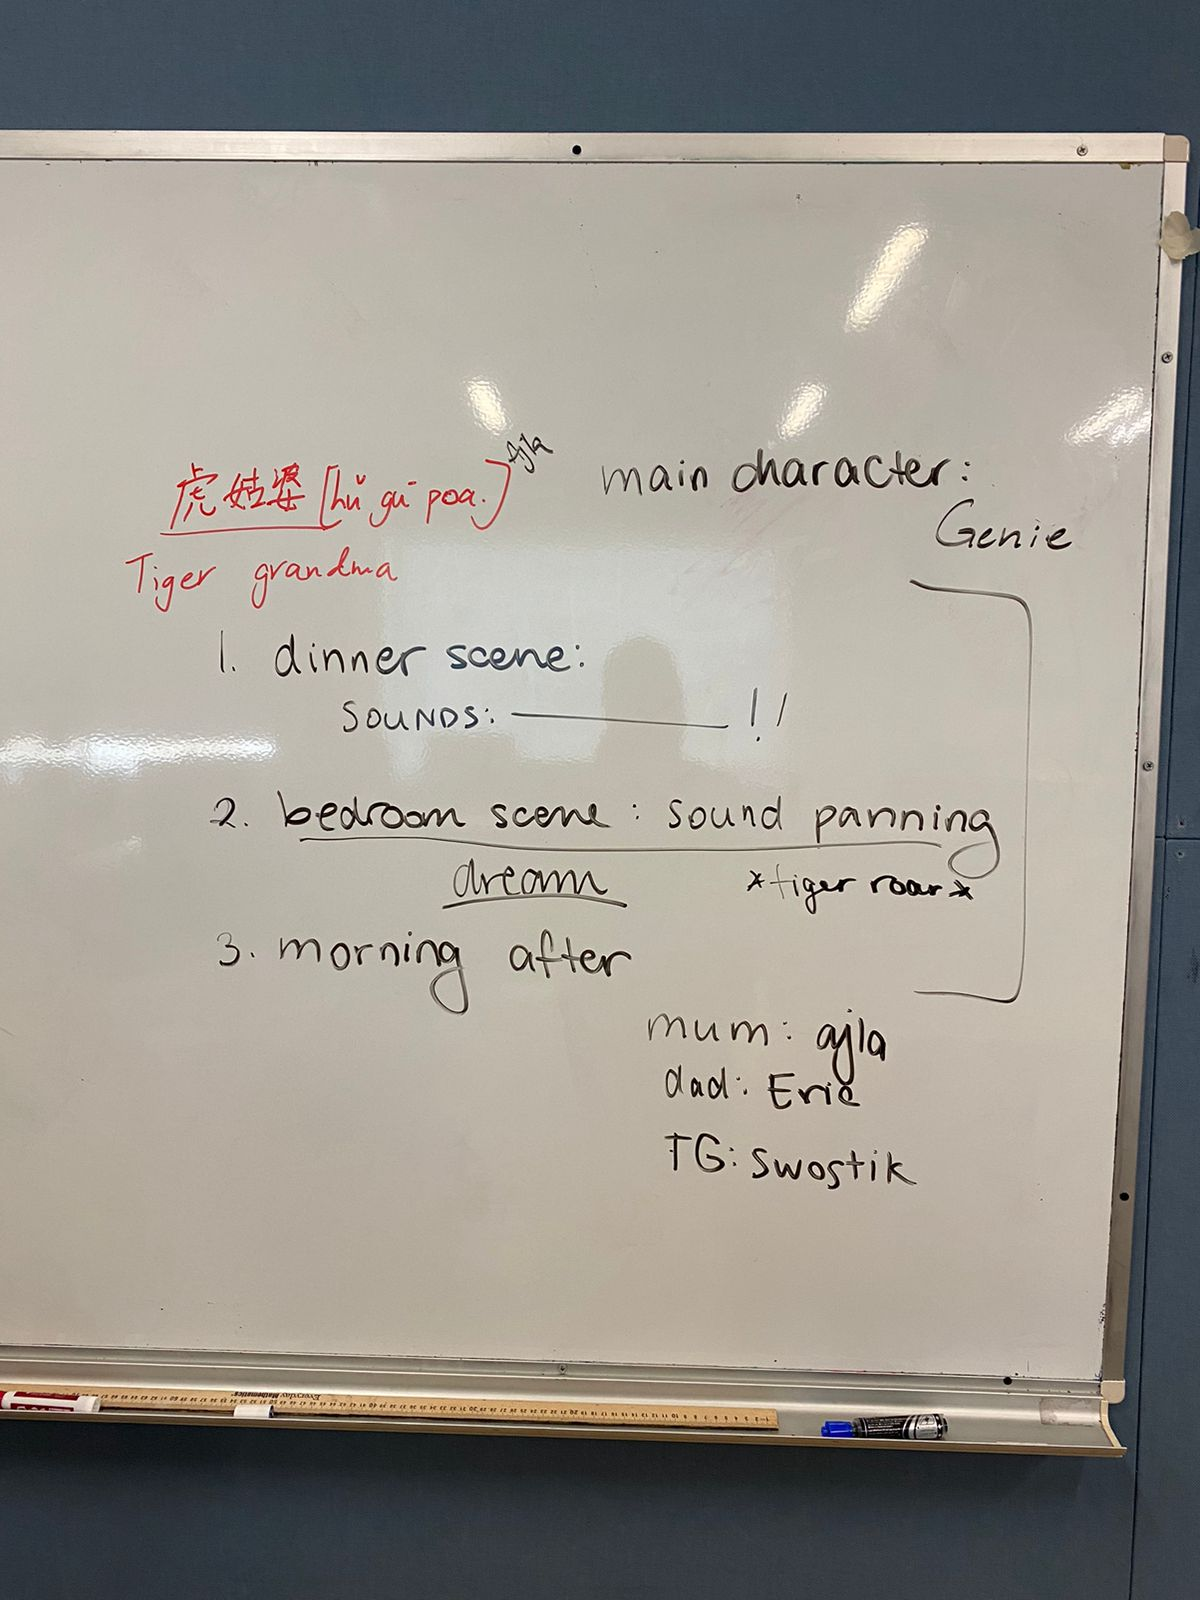 虎姑婆 [hǔ gū poa.] Ajla
Tiger grandma
main character:
Genie
1. dinner scene:
SOUNDS: ———— !!
2. bedroom scene: sound panning
dream *tiger roar*
3. morning after
mum: ajla
dad: Eric
TG: Swostik
Everyday Mathematics